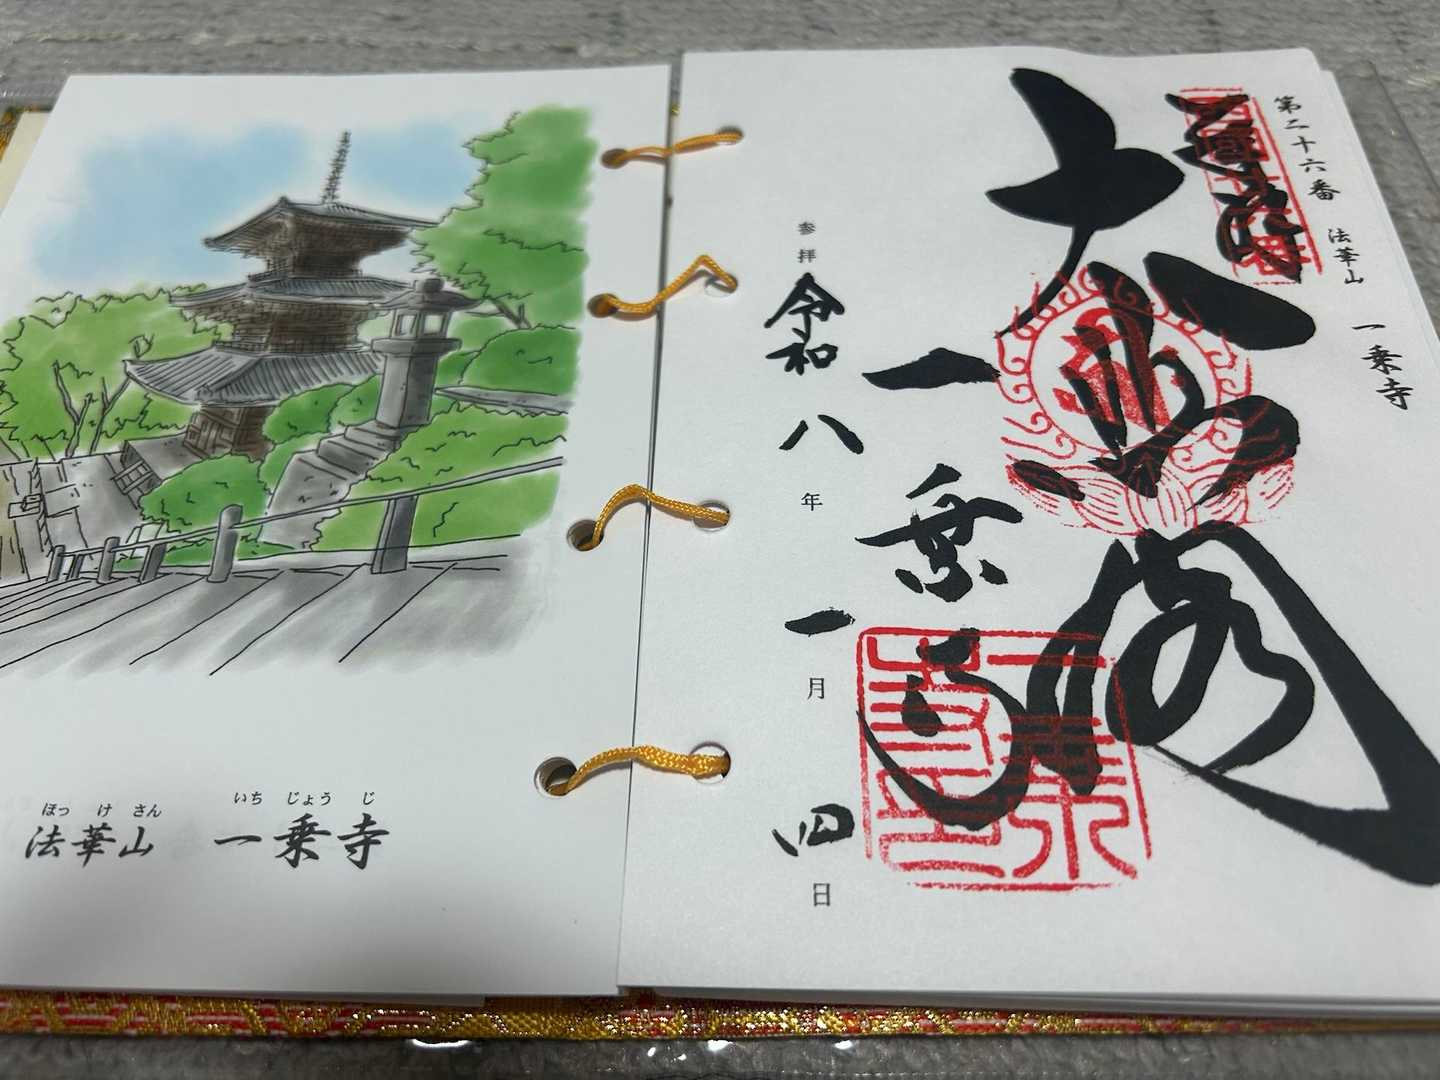 ほっ け さん いち じょう じ
法華山 一乗寺
第二十六番 法華山 一乗寺
奉拝
大悲閣
一乗寺
参拝 令和八年一月四日